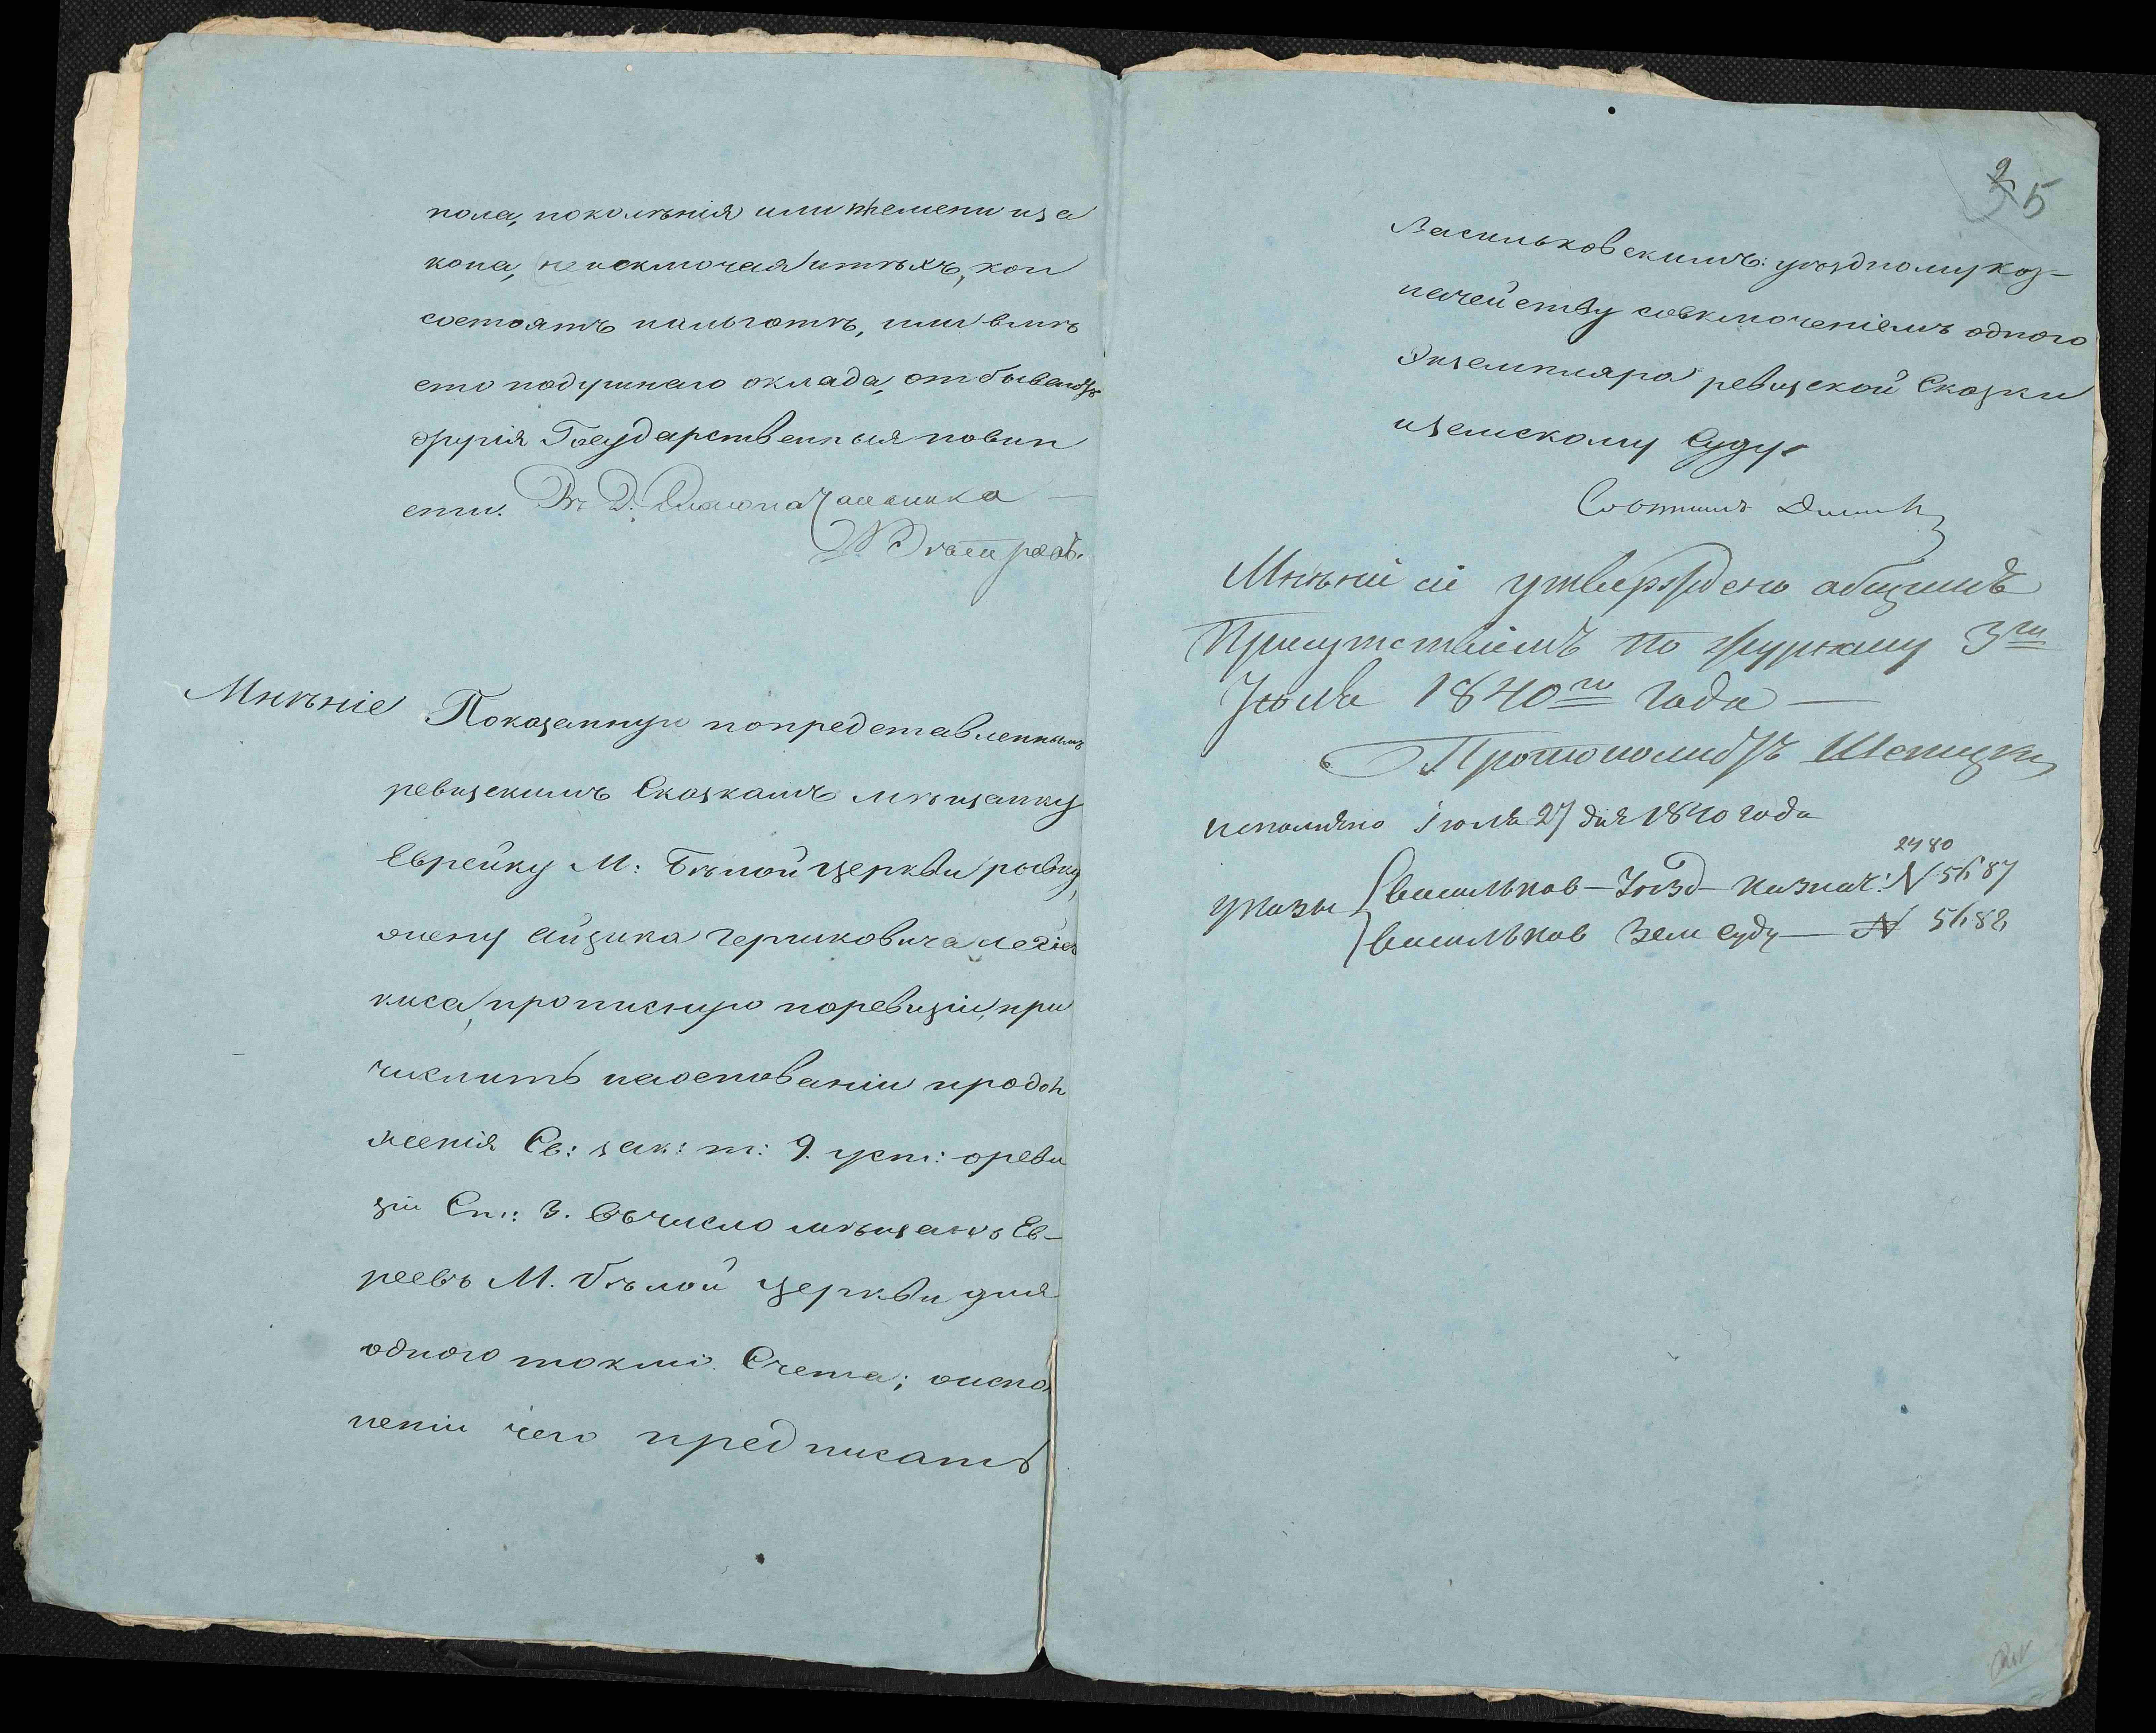 пола, поколѣнія или племени иза
кона, не исключая итѣхъ, кои
состоятъ нальготѣ, или вмѣ
сто подушнаго оклада, отбываютъ
другія Государственныя повин
ности. В. Д. Столоначальника
Мнѣніе Показанную попредставленнымъ
ревизскимъ Сказкамъ мѣщанку
Еврейку М: Бѣлой церкви рывку,
жену айзика гершковича
киса, прописную поревизіи, при
числить наоснованіи продол
женія Св: зак: т: 9. уст: ореви
зіи Ст: 3. вчисло мѣщанъ Ев-
реевъ М. Бѣлой церкви для
одного токмо Счета; оиспол
неніи чего предписать
5
Васильковскимъ: уѣздному каз-
начейству совключеніемъ одного
Экземпляра ревизской Сказки
иземскому Суду.
Совѣтникъ
Мнѣніе сіе утверждено общимъ
Присутствіемъ по журналу 3го
Іюля 1840го года
Протоколистъ
исполнено іюля 27 дня 1840 года
2480
указы васильков - Уѣзд - казнач: № 5187
васильков Зем суду - № 5188